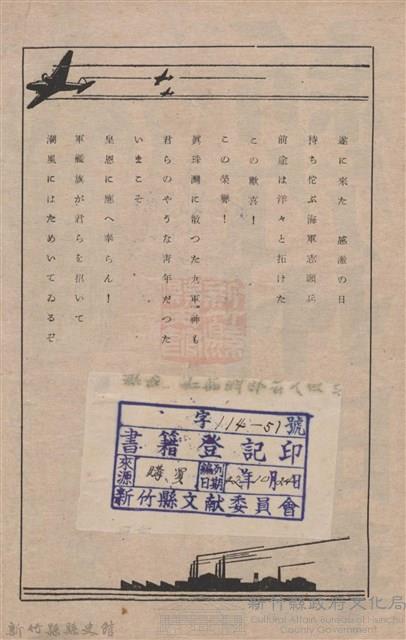 遂に來た 感激の日
持ち侘ぶ海軍志願兵
前途は洋々と拓けた
この歡喜!
この榮譽!
眞珠灣に散つた九軍神も
君らのやうな靑年だつた
いまこそ
皇恩に應へ奉らん!
軍艦旗が君らを招いて
潮風にはためいてゐるぞ
字114-51號
書籍登記印
來源 購買 編列日期 年10月24日
新竹縣文献委員會
新竹縣縣史館
新竹縣政府文化局
Cultural Affairs Bureau of Hsinchu
County Government